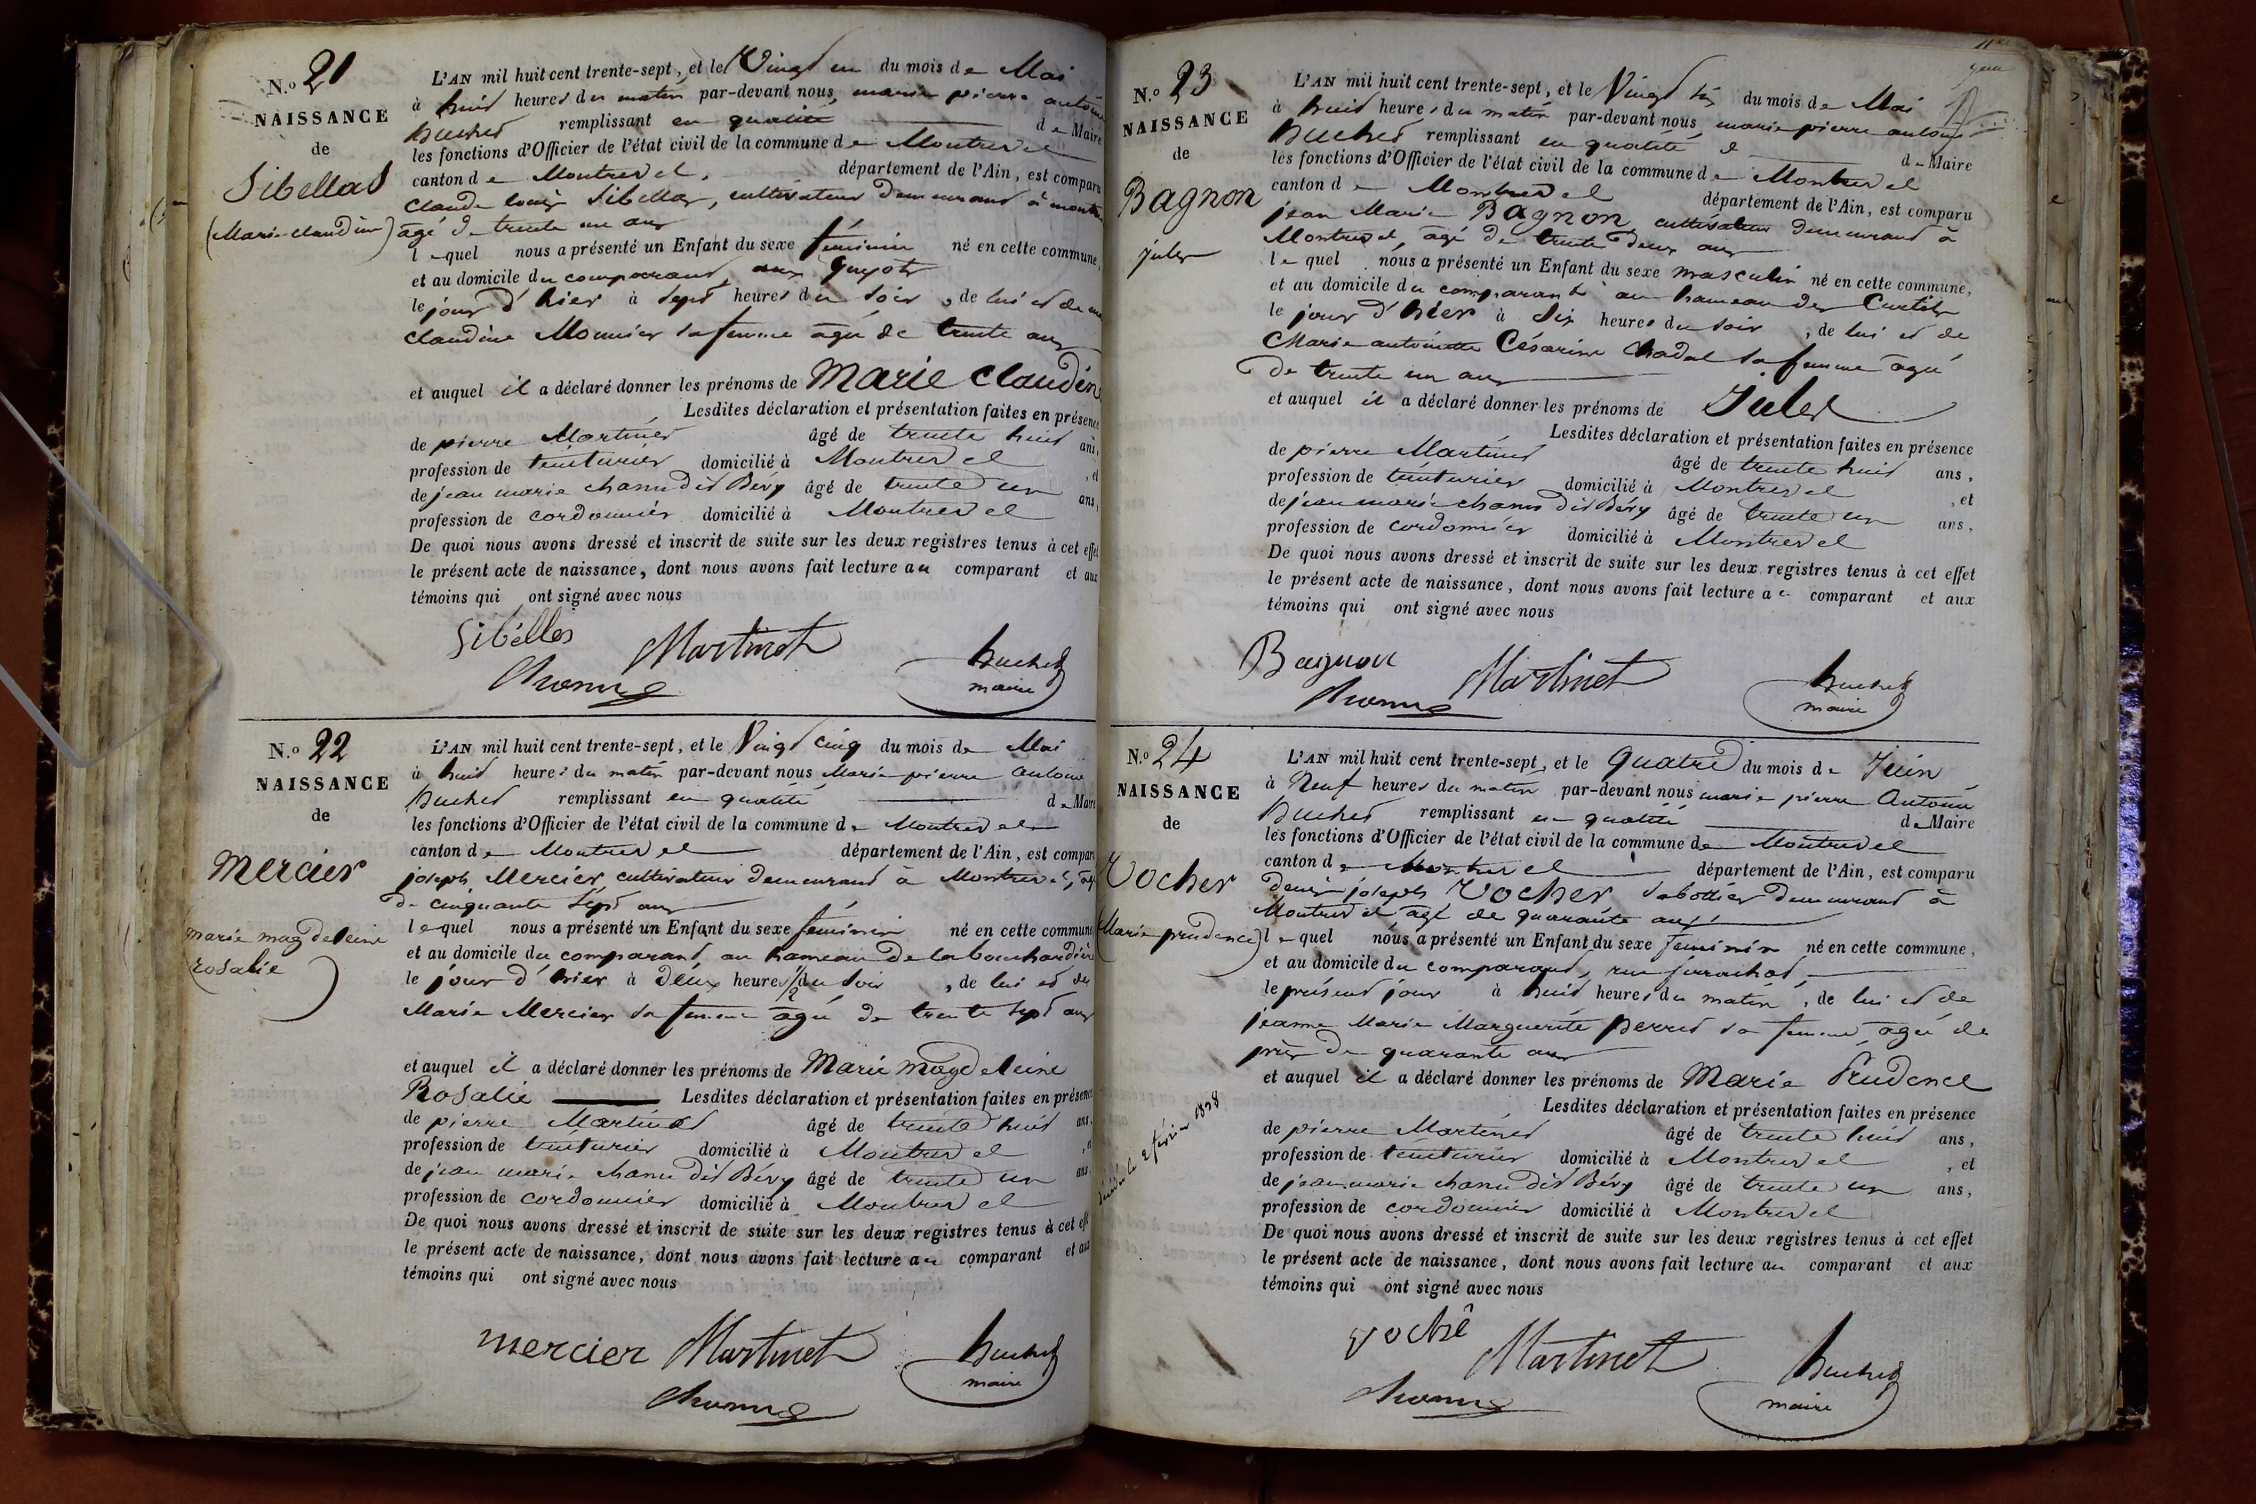 N.o 21
NAISSANCE
de
Sibellas
(Marie claudine)
L'AN mil huit cent trente-sept, et le Vingt un du mois de Mai
à huit heures du matin par-devant nous, marie pierre antoine
Buchet remplissant en qualité de Maire
les fonctions d'Officier de l'état civil de la commune de Montrevel
canton de Montrevel, département de l'Ain, est comparu
claude louis Sibellas, cultivateur demeurant à
agé de trente un ans
lequel nous a présenté un Enfant du sexe féminin né en cette commune,
et au domicile du comparant aux Guyots
le jour d'hier à sept heures du soir, de lui et de
claudine Mounier sa femme agée de trente ans
et auquel il a déclaré donner les prénoms de Marie claudine
Lesdites déclaration et présentation faites en présence
de pierre Martinet âgé de trente huit ans,
profession de teinturier domicilié à Montrevel, et
de jean marie chanu dit Bévy âgé de trente un ans,
profession de cordonnier domicilié à Montrevel
De quoi nous avons dressé et inscrit de suite sur les deux registres tenus à cet effet
le présent acte de naissance, dont nous avons fait lecture au comparant et aux
témoins qui ont signé avec nous
Sibéllas Martinet Buchet
maire
N.o 22
NAISSANCE
de
Mercier
marie magdeleine
rosalie
L'AN mil huit cent trente-sept, et le Vingt cinq du mois de Mai
à huit heures du matin par-devant nous Marie pierre antoine
Buchet remplissant en qualité de Maire
les fonctions d'Officier de l'état civil de la commune de Montrevel
canton de Montrevel département de l'Ain, est comparu
joseph Mercier cultivateur demeurant à Montrevel, agé
de cinquante sept ans
lequel nous a présenté un Enfant du sexe féminin né en cette commune
et au domicile du comparant au hameau de la bouchardière
le jour d'hier à deux heures 1/2 du soir, de lui et de
Marie Mercier sa femme agée de trente sept ans
et auquel il a déclaré donner les prénoms de Marie Magdeleine
Rosalie Lesdites déclaration et présentation faites en présence
de pierre Martinet âgé de trente huit ans,
profession de teinturier domicilié à Montrevel, et
de jean marie chanu dit Bévy âgé de trente un ans
profession de cordonnier domicilié à Montrevel
De quoi nous avons dressé et inscrit de suite sur les deux registres tenus à cet effet
le présent acte de naissance, dont nous avons fait lecture au comparant et aux
témoins qui ont signé avec nous
mercier Martinet Buchet
maire
N.o 23
NAISSANCE
de
Bagnon
jules
L'AN mil huit cent trente-sept, et le Vingt six du mois de Mai
à huit heures du matin par-devant nous marie pierre antoine
Buchet remplissant en qualité de Maire
les fonctions d'Officier de l'état civil de la commune de Montrevel
canton de Montrevel département de l'Ain, est comparu
jean Marie Bagnon cultivateur demeurant à
Montrevel, agé de trente deux ans
lequel nous a présenté un Enfant du sexe masculin né en cette commune,
et au domicile du comparant au hameau des Curtils
le jour d'hier à six heures du soir, de lui et de
Marie antoinette Césarine Chadal sa femme agée
de trente un ans
et auquel il a déclaré donner les prénoms de Jules
Lesdites déclaration et présentation faites en présence
de pierre Martinet âgé de trente huit ans,
profession de teinturier domicilié à Montrevel, et
de jean marie chanu dit Bévy âgé de trente un ans,
profession de cordonnier domicilié à Montrevel
De quoi nous avons dressé et inscrit de suite sur les deux registres tenus à cet effet
le présent acte de naissance, dont nous avons fait lecture au comparant et aux
témoins qui ont signé avec nous
Bagnon Martinet Buchet
maire
N.o 24
NAISSANCE
de
Vocher
(Marie prudence)
2 février 1838
L'AN mil huit cent trente-sept, et le quatre du mois de Juin
à Neuf heures du matin par-devant nous marie pierre Antoine
Buchet remplissant en qualité de Maire
les fonctions d'Officier de l'état civil de la commune de Montrevel
canton de Montrevel département de l'Ain, est comparu
denis joseph Vocher sabottier demeurant à
Montrevel agé de quarante ans
lequel nous a présenté un Enfant du sexe feminin né en cette commune,
et au domicile du comparant, rue
le présent jour à huit heures du matin, de lui et de
jeanne Marie Marguerite perret sa femme, agée de
près de quarante ans
et auquel il a déclaré donner les prénoms de Marie Prudence
Lesdites déclaration et présentation faites en présence
de pierre Martinet âgé de trente huit ans,
profession de teinturier domicilié à Montrevel, et
de jean marie chanu dit Bévy âgé de trente un ans,
profession de cordonnier domicilié à Montrevel
De quoi nous avons dressé et inscrit de suite sur les deux registres tenus à cet effet
le présent acte de naissance, dont nous avons fait lecture au comparant et aux
témoins qui ont signé avec nous
vochê Martinet Buchet
maire